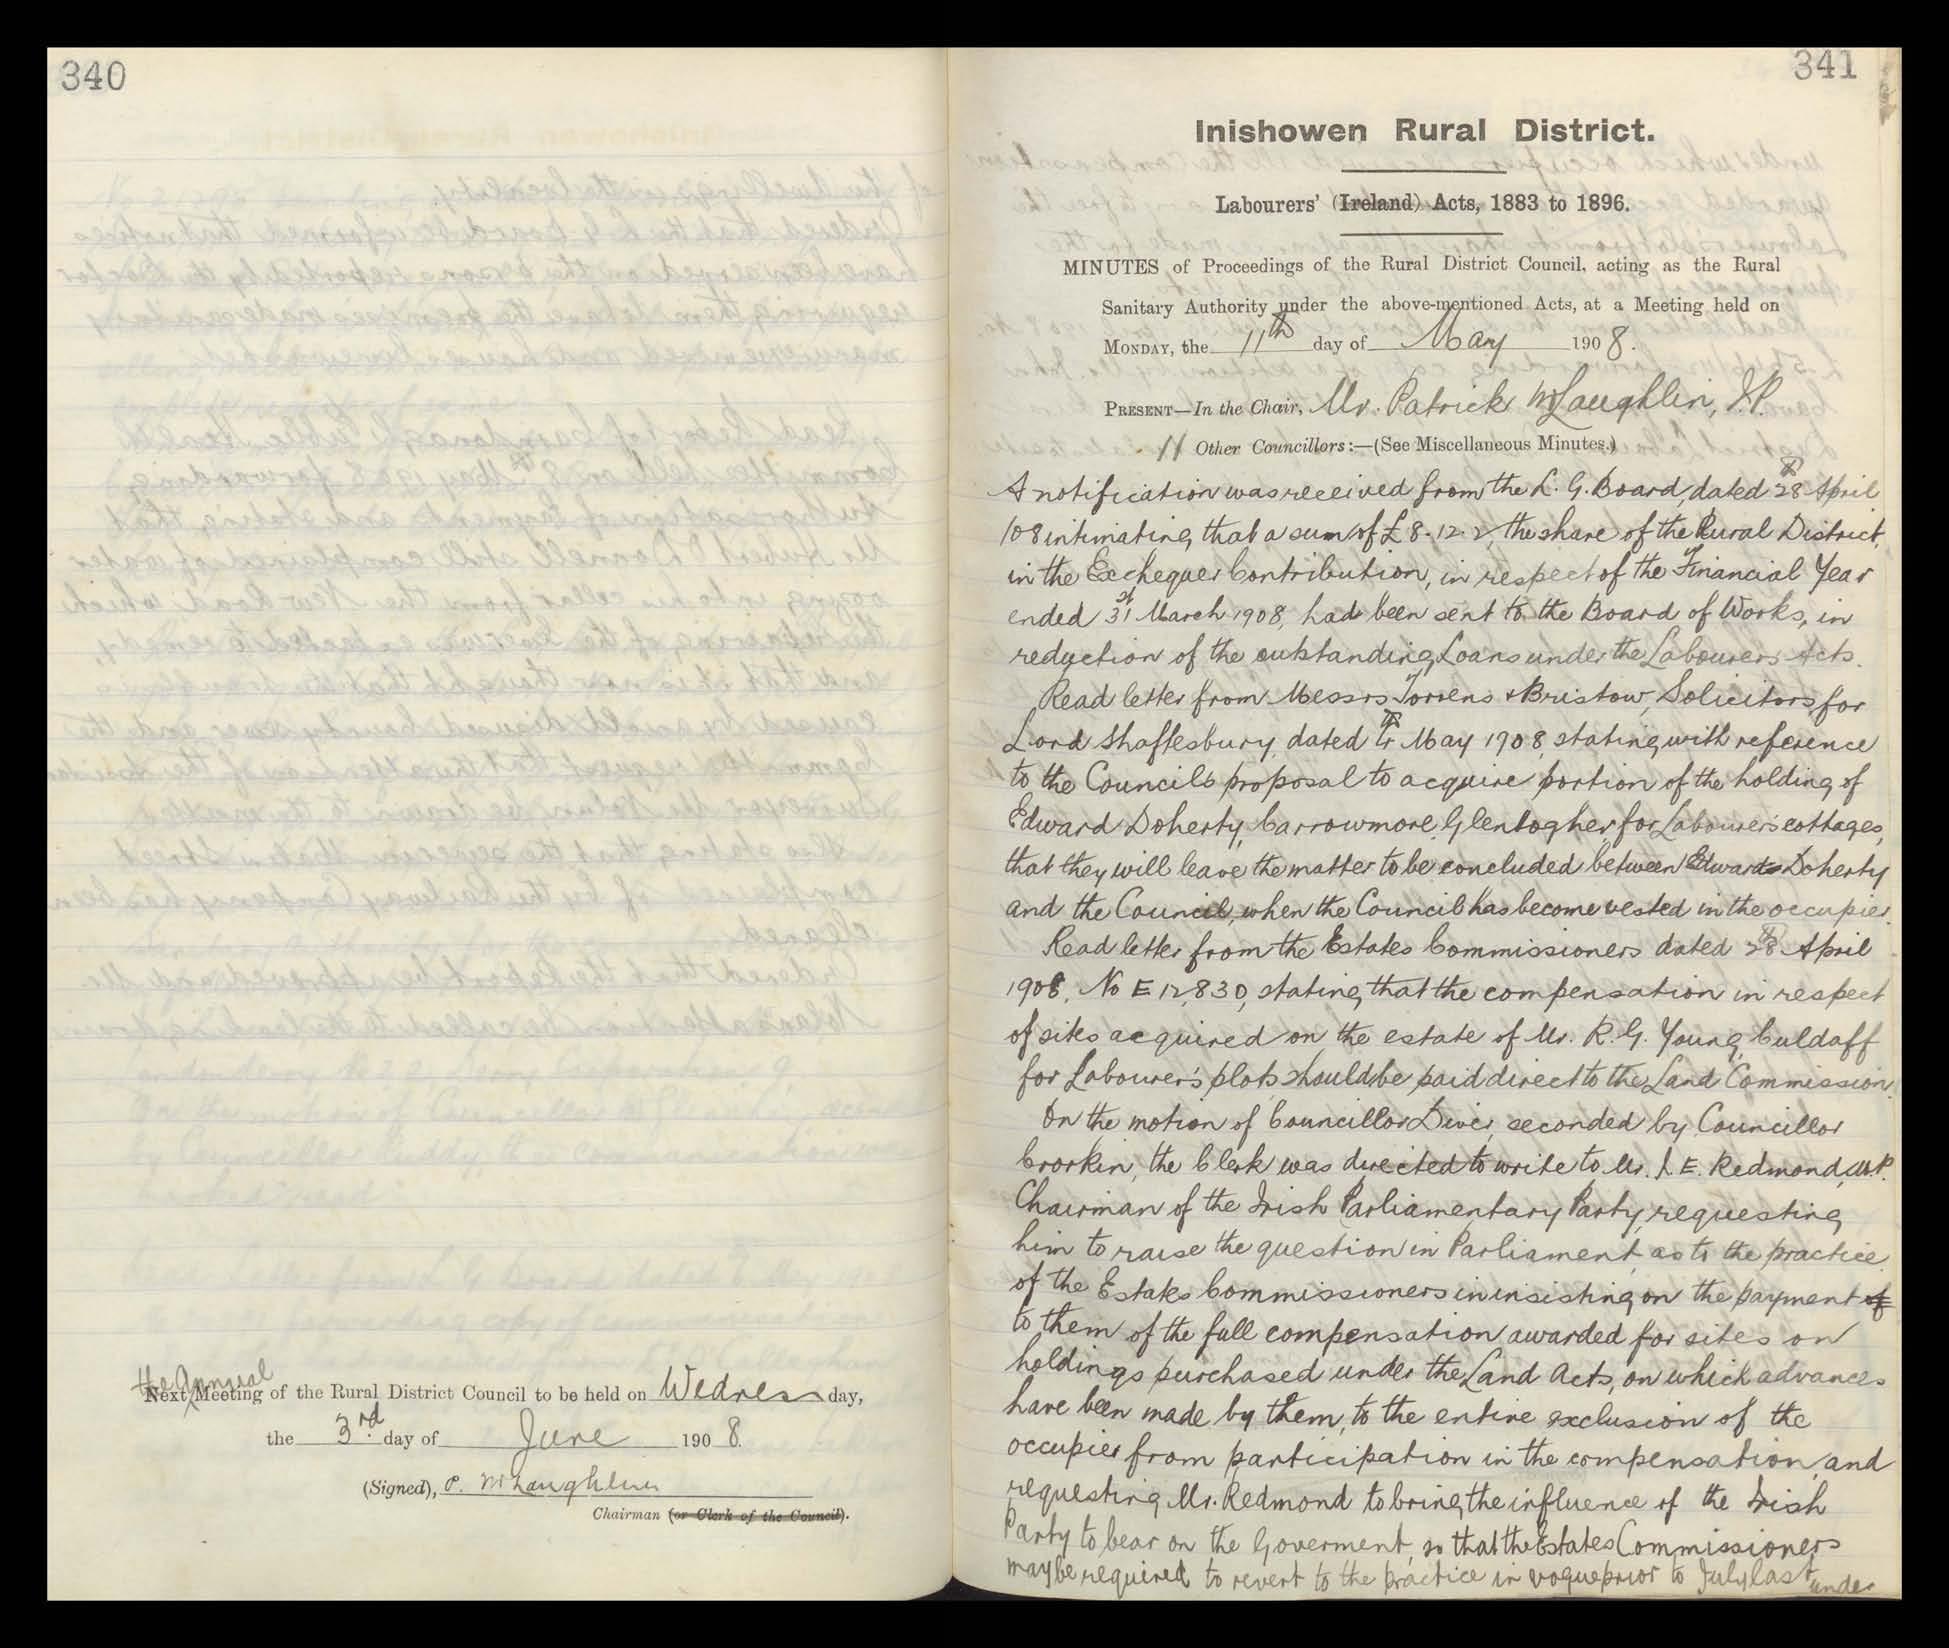 340
the Annual
Next Meeting of the Rural District Council to be held on Wednesday,
the 3rd day of June 1908.
(Signed), P. McLaughlin
Chairman (or Clerk of the Council).
341
Inishowen Rural District.
Labourers' (Ireland) Acts, 1883 to 1896.
MINUTES of Proceedings of the Rural District Council, acting as the Rural
Sanitary Authority under the above-mentioned Acts, at a Meeting held on
MONDAY, the 11th day of May 1908.
PRESENT—In the Chair, Mr. Patrick McLaughlin, J.P.
11 Other Councillors:—(See Miscellaneous Minutes.)
A notification was received from the L. G. Board, dated 28th April
/08 intimating that a sum of £8.12.2, the share of the Rural District,
in the Exchequer Contribution, in respect of the Financial Year
ended 31st March 1908, had been sent to the Board of Works, in
reduction of the outstanding Loans under the Labourers Acts.
Read letter from Messrs Torrens & Bristow, Solicitors for
Lord Shaftesbury, dated May 1908, stating with reference
to the Council's proposal to acquire portion of the holding of
Edward Doherty, Carrowmore, Glentogher for Labourers' cottages,
that they will leave the matter to be concluded between Edward Doherty
and the Council, when the Council has become vested in the occupier.
Read letter from the Estates Commissioners dated 28th April
1908, No E 12,830, stating that the compensation in respect
of sites acquired on the estate of Mr. R. G. Young, Culdaff
for Labourer's plots should be paid direct to the Land Commission.
On the motion of Councillor Diver, seconded by Councillor
Crorkin, the Clerk was directed to write to Mr. J. E. Redmond, M.P.
Chairman of the Irish Parliamentary Party, requesting
him to raise the question in Parliament, as to the practice
of the Estates Commissioners in insisting on the payment of
to them of the full compensation awarded for sites on
holdings purchased under the Land Acts, on which advances
have been made by them, to the entire exclusion of the
occupier from participation in the compensation, and
requesting Mr. Redmond to bring the influence of the Irish
Party to bear on the Goverment, so that the Estates Commissioners
may be required to revert to the practice in vogue prior to July last, under